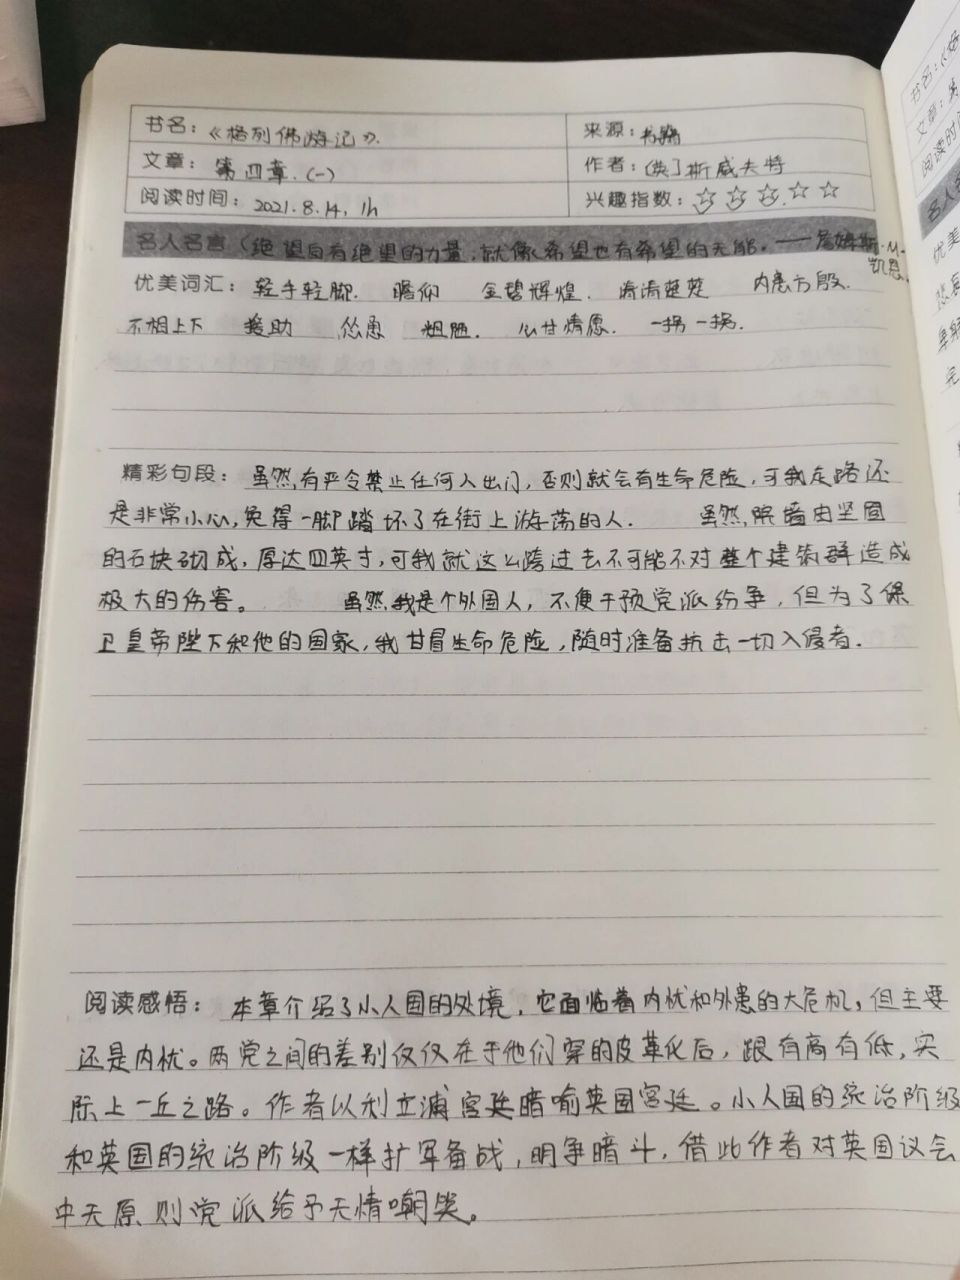 书名：《格列佛游记》. 来源：书籍
文章：第四章.（一） 作者：（英）斯威夫特
阅读时间：2021.8.14. 1h 兴趣指数：☆☆☆☆☆
名人名言（绝望自有绝望的力量，就像希望也有希望的无能。——詹姆斯·M·
凯恩.
优美词汇：轻手轻脚. 瞻仰 金碧辉煌. 清清楚楚 内患方殷.
不相上下 援助 怂恿 粗陋. 心甘情愿. 一拐一拐.
精彩句段：虽然有严令禁止任何人出门，否则就会有生命危险，可我走路还
是非常小心，免得一脚踏坏了在街上游荡的人. 虽然 由坚固
的石块砌成，厚达四英寸，可我就这么跨过去不可能不对整个建筑群造成
极大的伤害。 虽然我是个外国人，不便干预党派纷争，但为了保
卫皇帝陛下和他的国家，我甘冒生命危险，随时准备抗击一切入侵者.
阅读感悟：本章介绍了小人国的处境，它面临着内忧和外患的大危机，但主要
还是内忧。两党之间的差别仅仅在于他们穿的皮革化后，跟有高有低，实
际上一丘之路。作者以利立浦宫廷暗喻英国宫廷。小人国的统治阶级
和英国的统治阶级一样扩军备战，明争暗斗，借此作者对英国议会
中无原则党派给予无情嘲笑。
书名：《格
文章：第
阅读时间
名人名
优美